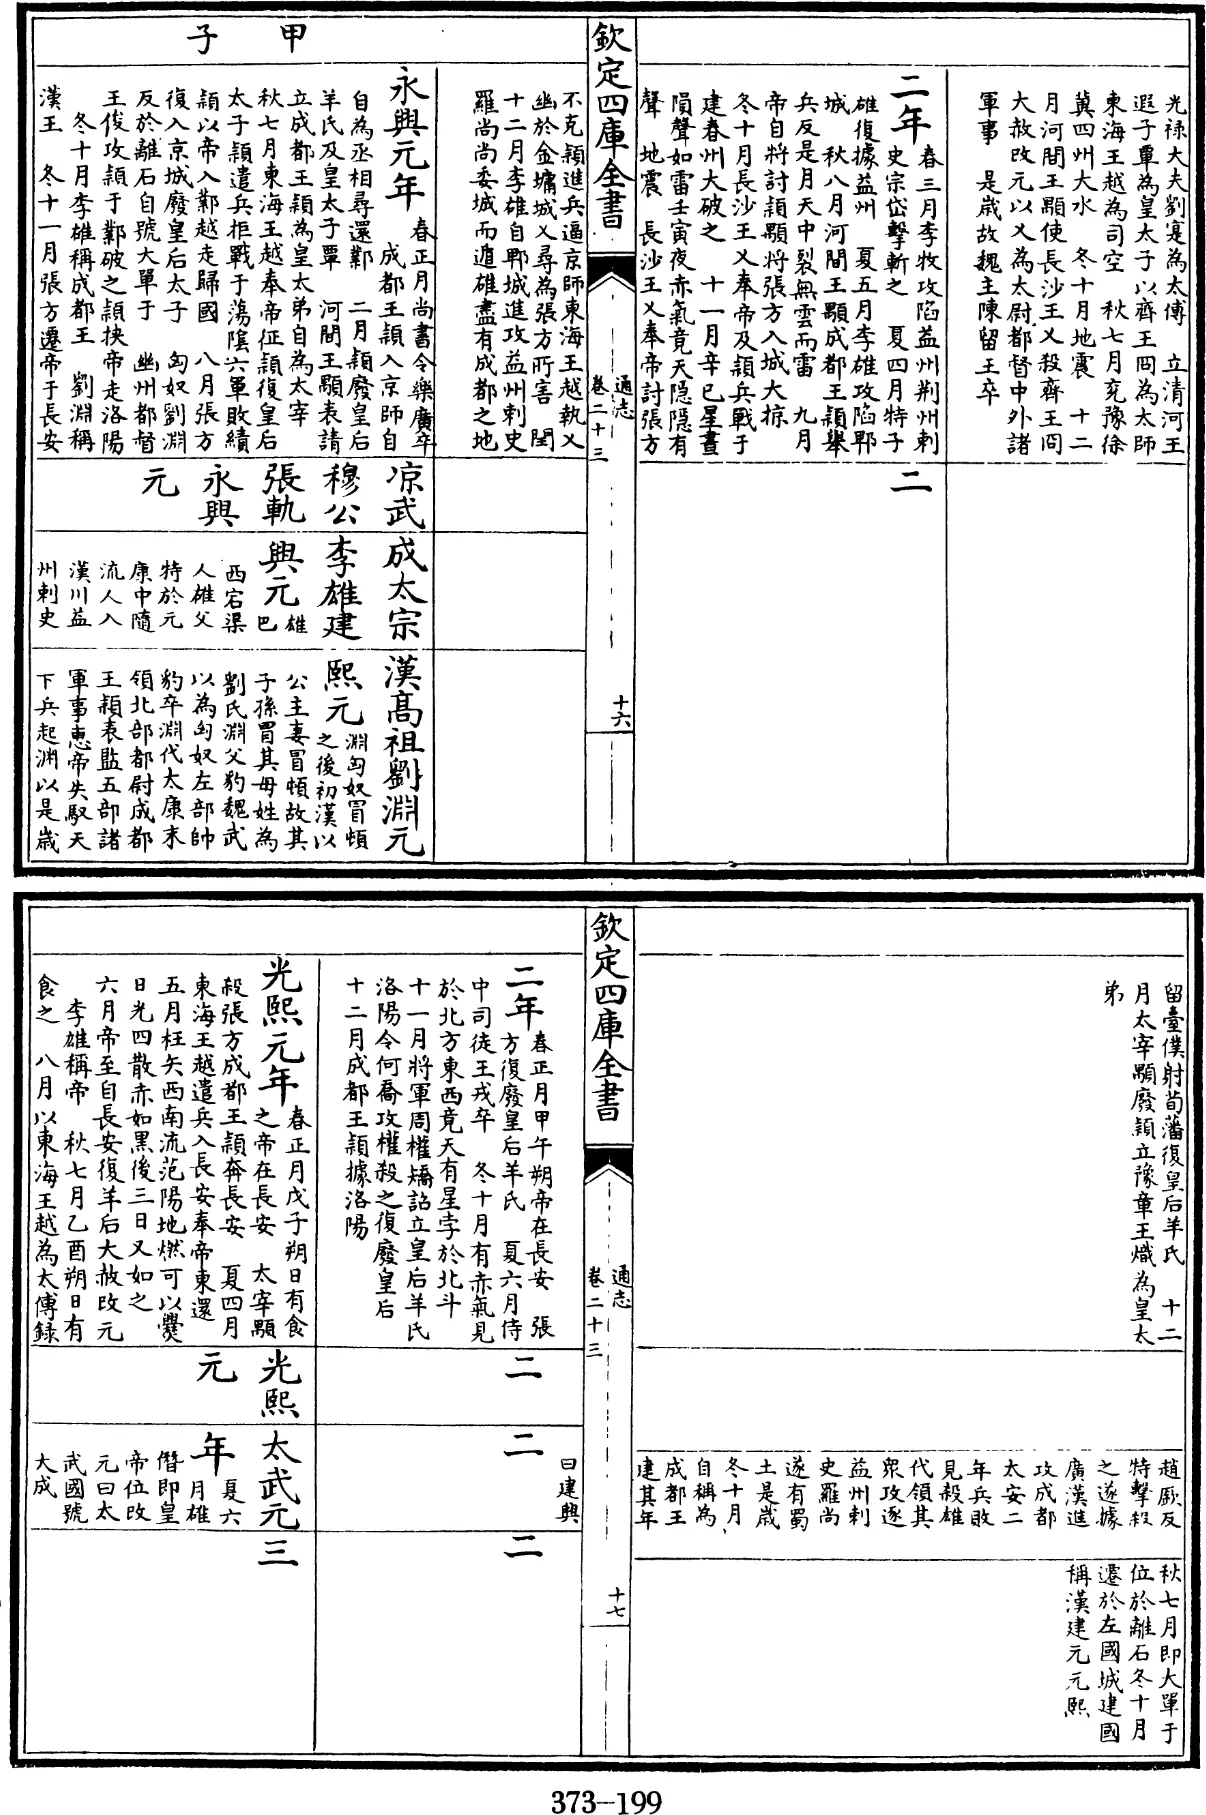 光禄大夫劉寔為太傅　立清河王
遐子覃為皇太子以齊王冏為太師
東海王越為司空　秋七月兖豫徐
冀四州大水　冬十月地震　十二
月河間王顒使長沙王乂殺齊王冏
大赦改元以乂為太尉都督中外諸
軍事　是歲故魏主陳留王卒
二年
春三月李牧攻陷益州荆州刺
史宗岱擊斬之　夏四月特子
雄復據益州　夏五月李雄攻陷郫
城　秋八月河間王顒成都王穎舉
兵反是月天中裂無雲而雷　九月
帝自將討穎顒將張方入城大掠
冬十月長沙王乂奉帝及穎兵戰于
建春州大破之　十一月辛巳星晝
隕聲如雷壬寅夜赤氣竟天隱隱有
聲　地震　長沙王乂奉帝討張方
二
欽定四庫全書
通志
卷二十三
十六
不克穎進兵逼京師東海王越執乂
幽於金墉城乂尋為張方所害　閏
十二月李雄自郫城進攻益州刺史
羅尚尚委城而遁雄盡有成都之地
甲子
永興元年
春正月尚書令樂廣卒
成都王穎入京師自
自為丞相尋還鄴　二月穎廢皇后
羊氏及皇太子覃　河間王顒表請
立成都王穎為皇太弟自為太宰
秋七月東海王越奉帝征穎復皇后
太子穎遣兵拒戰于蕩陰六軍敗績
穎以帝入鄴越走歸國　八月張方
復入京城廢皇后太子　匈奴劉淵
反於離石自號大單于　幽州都督
王俊攻穎于鄴破之穎挾帝走洛陽
冬十月李雄稱成都王　劉淵稱
漢王　冬十一月張方遷帝于長安
凉武
穆公
張軌
永興
元
成太宗
李雄建
興元
雄巴
西宕渠
人雄父
特於元
康中隨
流人入
漢川益
州刺史
漢高祖劉淵元
熙元
淵匈奴冒頓
之後初漢以
公主妻冒頓故其
子孫冒其母姓為
劉氏淵父豹魏武
以為匈奴左部帥
豹卒淵代太康末
領北部都尉成都
王穎表監五部諸
軍事惠帝失馭天
下兵起淵以是歲
留臺僕射荀藩復皇后羊氏　十二
月太宰顒廢穎立豫章王熾為皇太
弟
趙廞反
特擊殺
之遂據
廣漢進
攻成都
太安二
年兵敗
見殺雄
代領其
衆攻逐
益州刺
史羅尚
遂有蜀
土是歲
冬十月
自稱為
成都王
建其年
秋七月即大單于
位於離石冬十月
遷於左國城建國
稱漢建元元熙
欽定四庫全書
通志
卷二十三
十七
二年
春正月甲午朔帝在長安　張
方復廢皇后羊氏　夏六月侍
中司徒王戎卒　冬十月有赤氣見
於北方東西竟天有星孛於北斗
十一月將軍周權矯詔立皇后羊氏
洛陽令何喬攻權殺之復廢皇后
十二月成都王穎據洛陽
二
曰建興
二
二
光熙元年
春正月戊子朔日有食
之帝在長安　太宰顒
殺張方成都王穎奔長安　夏四月
東海王越遣兵入長安奉帝東還
五月枉矢西南流范陽地燃可以爨
日光四散赤如黑後三日又如之
六月帝至自長安復羊后大赦改元
李雄稱帝　秋七月乙酉朔日有
食之　八月以東海王越為太傅録
光熙
元
太武元
年
夏六
月雄
僭即皇
帝位改
元曰太
武國號
大成
三
373-199